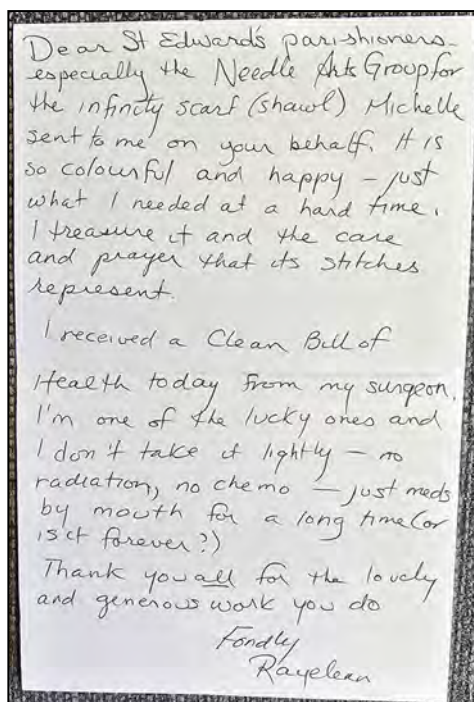 Dear St Edward's parishioners-
especially the Needle Arts Group for
the infinity scarf (shawl) Michelle
sent to me on your behalf. It is
so colourful and happy – just
what I needed at a hard time.
I treasure it and the care
and prayer that its stitches
represent.
I received a Clean Bill of
Health today from my surgeon.
I'm one of the lucky ones and
I don't take it lightly – no
radiation, no chemo – just meds
by mouth for a long time (or
is it forever?)
Thank you all for the lovely
and generous work you do
Fondly
Rayelean